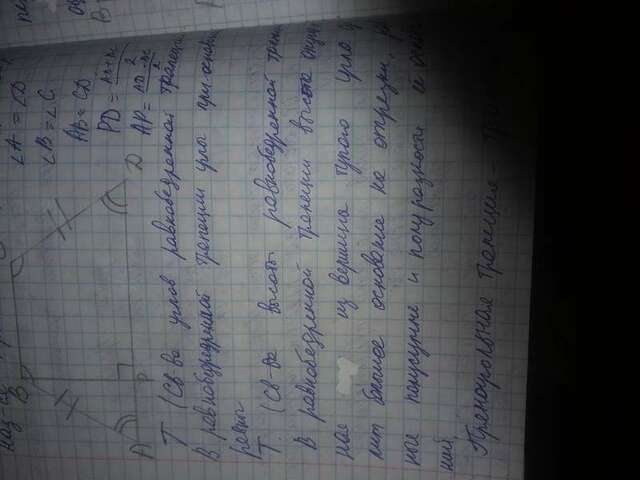 наз-ся
B
A
P
D
∠A = ∠D
∠B = ∠C
AB = CD
PD = AD+BC / 2
AP = AD-BC / 2
Т (Св-во углов равнобедренной трапеции
В равнобедренной трапеции углы при основ
равны
Т. (Св-во высоты равнобедренной трап
В равнобедренной трапеции высота опущ
ная из вершины тупого угла
лит большее основание на отрезки,
ные полусумме и полуразности её осно
ний.
Прямоугольная трапеция -